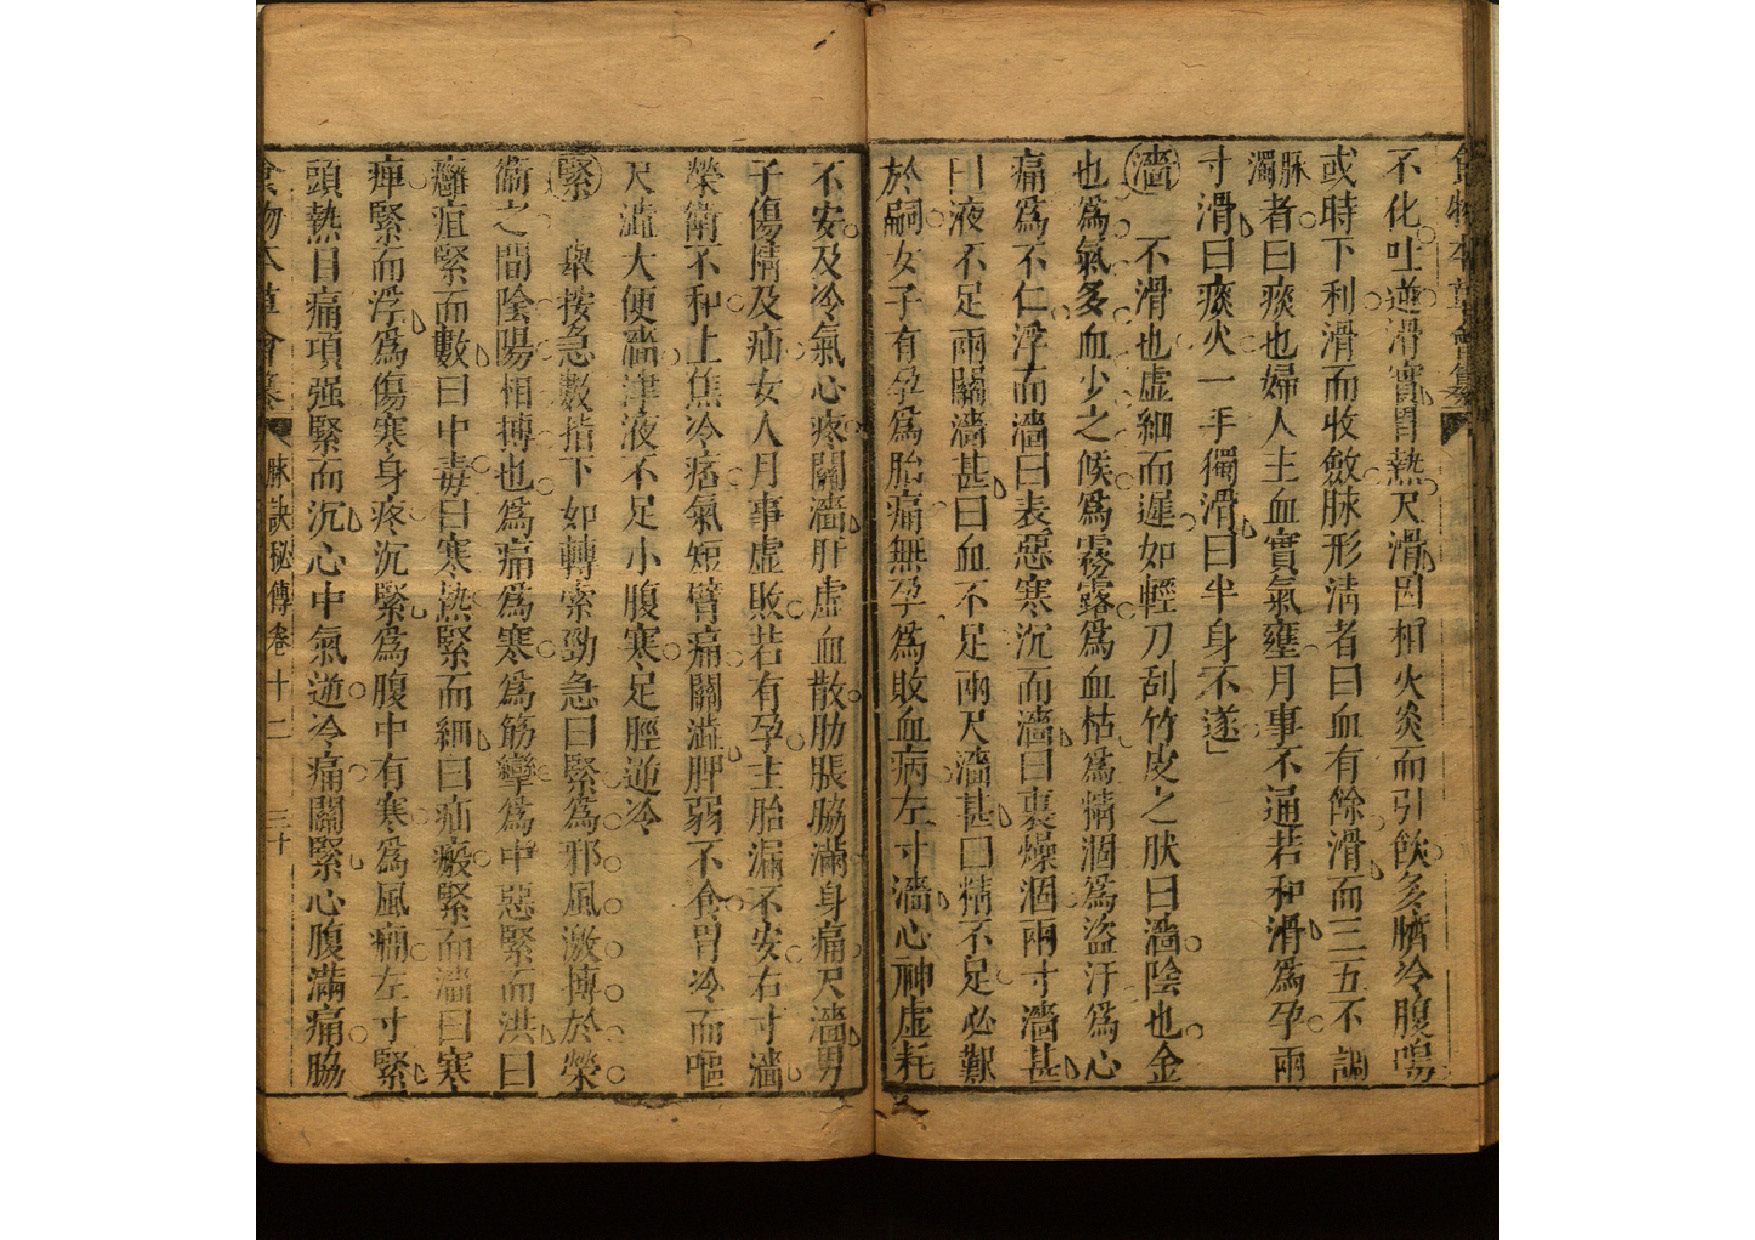 食物本草會纂
不化吐逆滑實胃熱尺滑因相火炎而引飲多臍冷腹鳴
或時下利滑而收斂脉形淸者曰血有餘滑而三五不調
脉濁者曰痰也婦人主血實氣壅月事不通若和滑爲孕兩
寸滑曰痰火一手獨滑曰半身不遂
濇　不滑也虛細而遲如輕刀刮竹皮之狀曰濇陰也金
也爲氣多血少之候爲霧露爲血枯爲精涸爲盜汗爲心
痛爲不仁浮而濇曰表惡寒沉而濇曰裏燥涸兩寸濇甚
曰液不足兩關濇甚曰血不足兩尺濇甚曰精不足必艱
於嗣女子有孕爲胎痛無孕爲敗血病左寸濇心神虛耗
不安及冷氣心疼關濇肝虛血散肋脹脇滿身痛尺濇男
子傷精及疝女人月事虛敗若有孕主胎漏不安右寸濇
榮衛不和上焦冷痞氣短臂痛關澁脾弱不食胃冷而嘔
尺澁大便濇津液不足小腹寒足脛逆冷
緊　舉按急數指下如轉索勁急曰緊爲邪風激搏於榮
衛之間陰陽相搏也爲痛爲寒爲筋攣爲中惡緊而洪曰
癰疽緊而數曰中毒曰寒熱緊而細曰疝瘕緊而濇曰寒
痺緊而浮爲傷寒身疼沉緊爲腹中有寒爲風癇左寸緊
頭熱目痛項强緊而沉心中氣逆冷痛關緊心腹滿痛脇
食物本草會纂　脉訣秘傳卷十二　三十